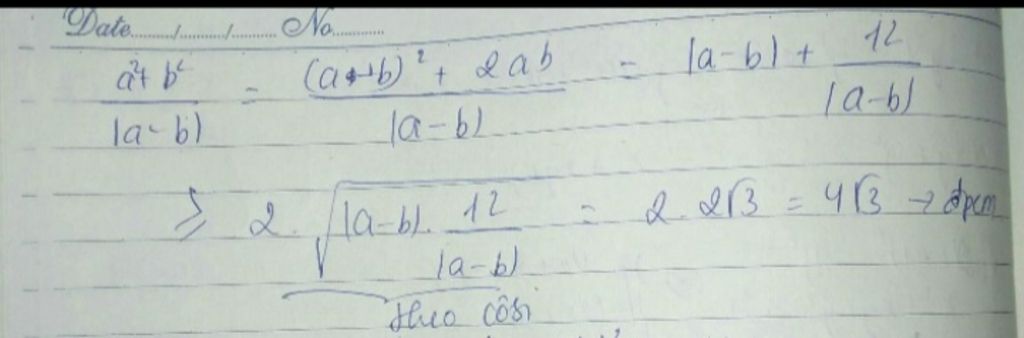 Date......../......../........ No............
a²+b²/|a-b| = (a-b)²+2ab/|a-b| = |a-b| + 12/|a-b|
≥ 2.√|a-b|.12/|a-b| = 2.2√3 = 4√3 → đpcm
theo côsi